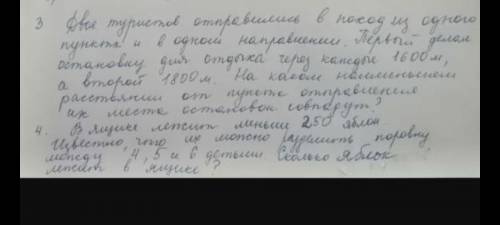 3 Двое туристов отправились в поход из одного
пункта и в одном направлении. Первый делал
остановку для отдыха через каждые 1600 м,
а второй 1800 м. На каком наименьшем
расстоянии от пункта отправления
их места остановок совпадут?
4. В ящике лежит меньше 250 яблок
Известно, что их можно разделить поровну
между 4, 5 и 6 детьми. Сколько яблок
лежит в ящике?